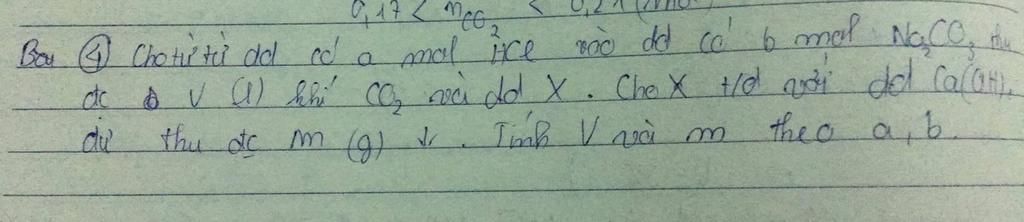 0,17 < nCO2 < 0,21
Bài ④ Cho từ từ dd có a mol HCl vào dd có b mol Na2CO3 thu
đc V (l) khí CO2 và dd X. Cho X t/d với dd Ca(OH)2
dư thu đc m (g) ↓. Tính V và m theo a, b.